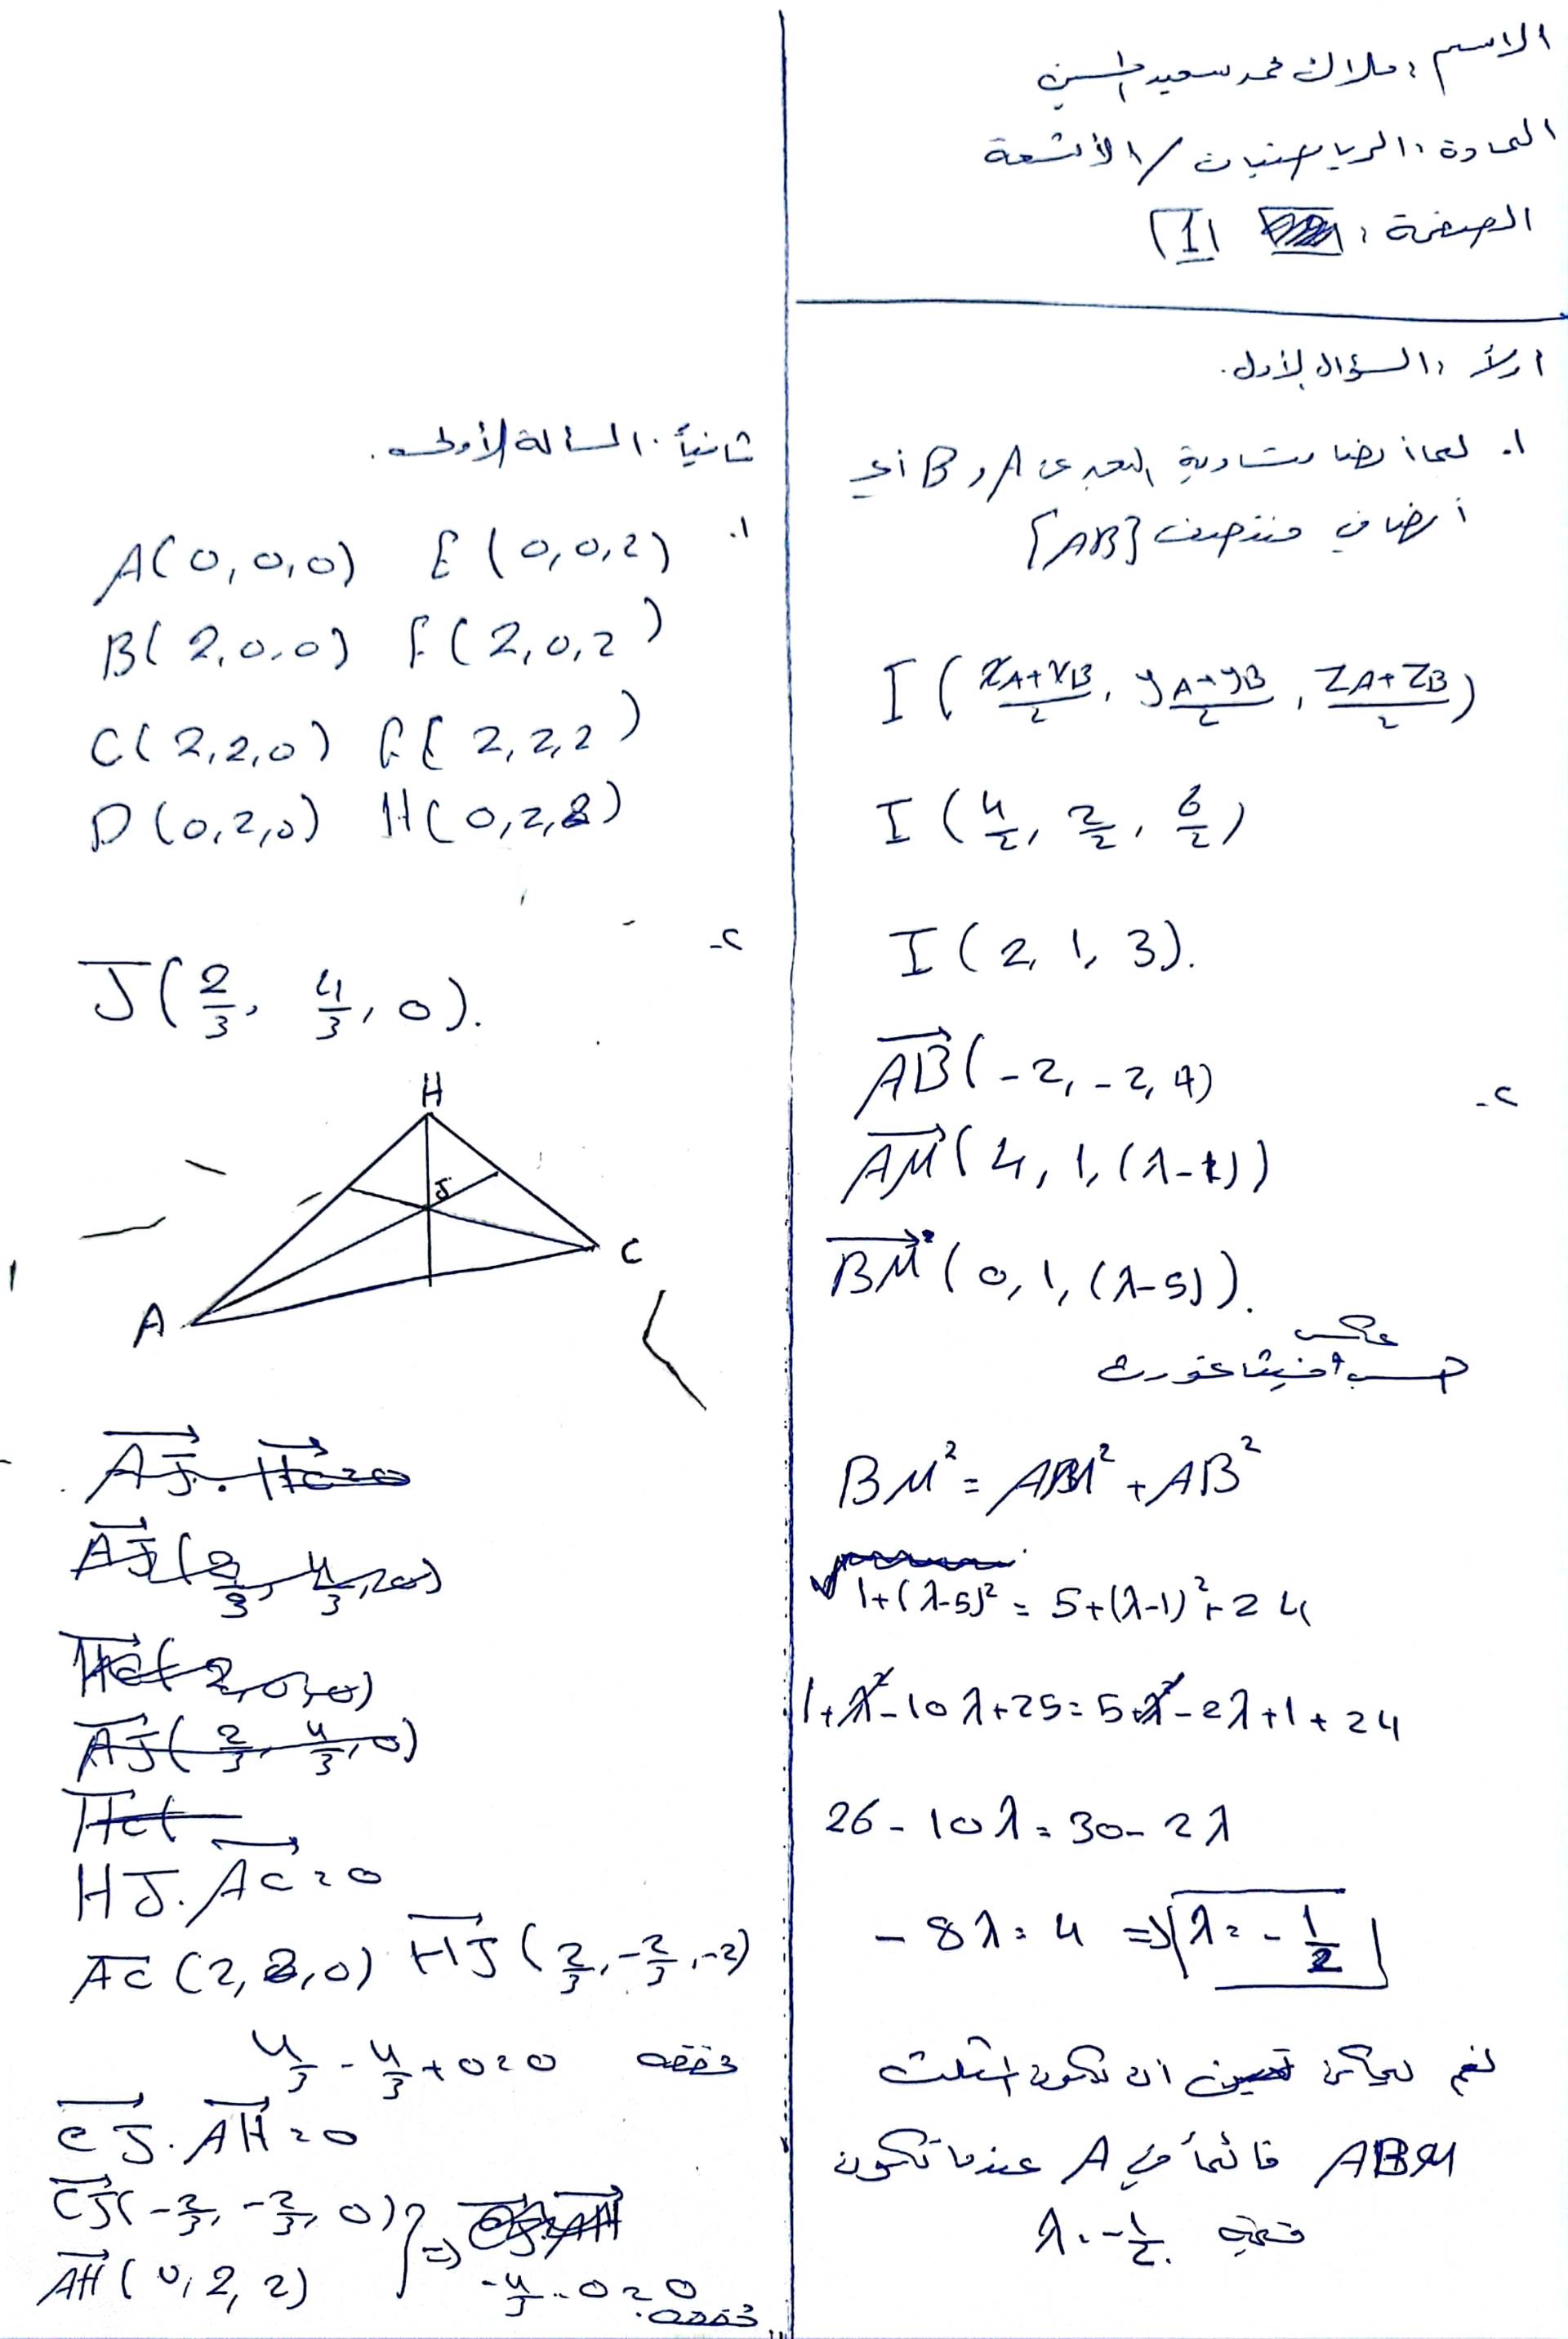 الاسم : ملاك محمد سعيد الحسين
المادة : الرياضيات / الأشعة
الصفحة : [1]
أولاً : السؤال الأول.
1. بما أنها متساوية البعد عن A و B أي
أنها في منتصف [AB]
I ( xA+xB/2 , yA+yB/2 , zA+zB/2 )
I ( 4/2 , 2/2 , 6/2 )
I ( 2, 1, 3 ).
2- AB→ ( -2, -2, 4 )
AM→ ( 4, 1, (λ-1) )
BM→ ( 0, 1, (λ-5) ).
حسب عكس فيثاغورث
BM² = AM² + AB²
1+(λ-5)² = 5+(λ-1)²+24
1+λ²-10λ+25 = 5+λ²-2λ+1+24
26 - 10λ = 30 - 2λ
-8λ = 4 ⇒ λ = -1/2
نعم يمكن أن يكون المثلث
ABM قائماً في A عندما تكون
λ = -1/2. قيمة
ثانياً : المسألة الأولى.
1. A(0,0,0) E(0,0,2)
B(2,0,0) F(2,0,2)
C(2,2,0) G(2,2,2)
D(0,2,0) H(0,2,2)
2- J( 2/3, 4/3, 0 ).
H
J
C
A
AJ→ . HC→ = 0
AJ→ ( 2/3, 4/3, 0 )
HC→ ( 2, 0, 0 )
AJ→ ( 2/3, 4/3, 0 )
HC→ (
HJ . AC→ = 0
AC (2,2,0) HJ→ ( 2/3, -2/3, -2 )
4/3 - 4/3 + 0 = 0 محققة
CJ→ . AH→ = 0
CJ→ ( -2/3, -2/3, 0 )
AH→ ( 0, 2, 2 ) ⇒ -4/3 - 0 = 0
محققة.